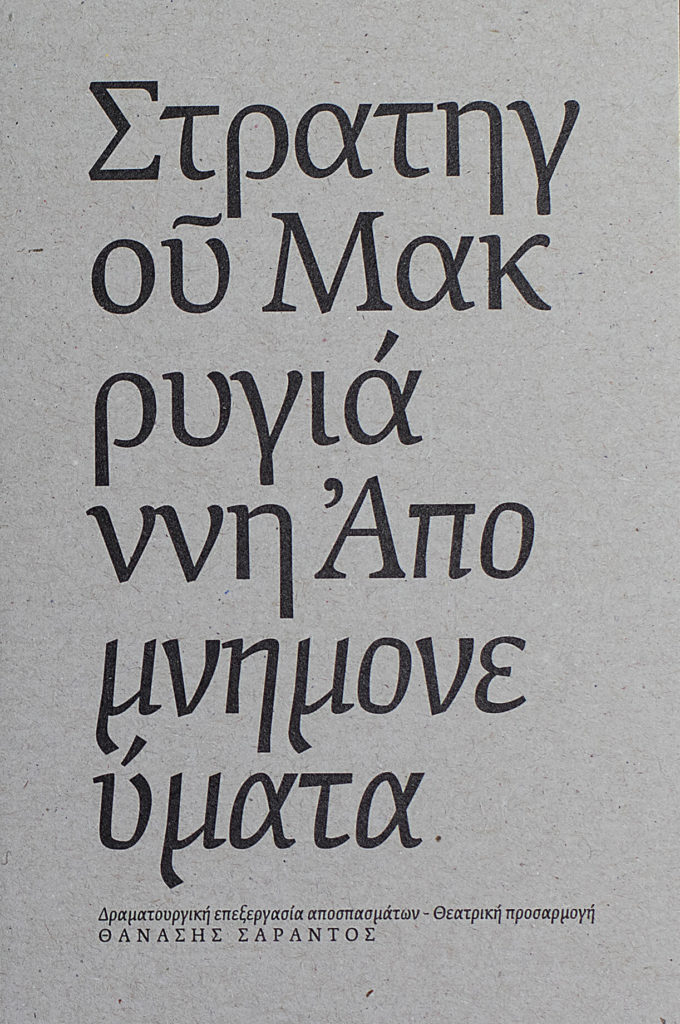 Στρατηγ
οῦ Μακ
ρυγιά
ννη Ἀπο
μνημονε
ύματα
Δραματουργική επεξεργασία αποσπασμάτων - Θεατρική προσαρμογή
ΘΑΝΑΣΗΣ ΣΑΡΑΝΤΟΣ